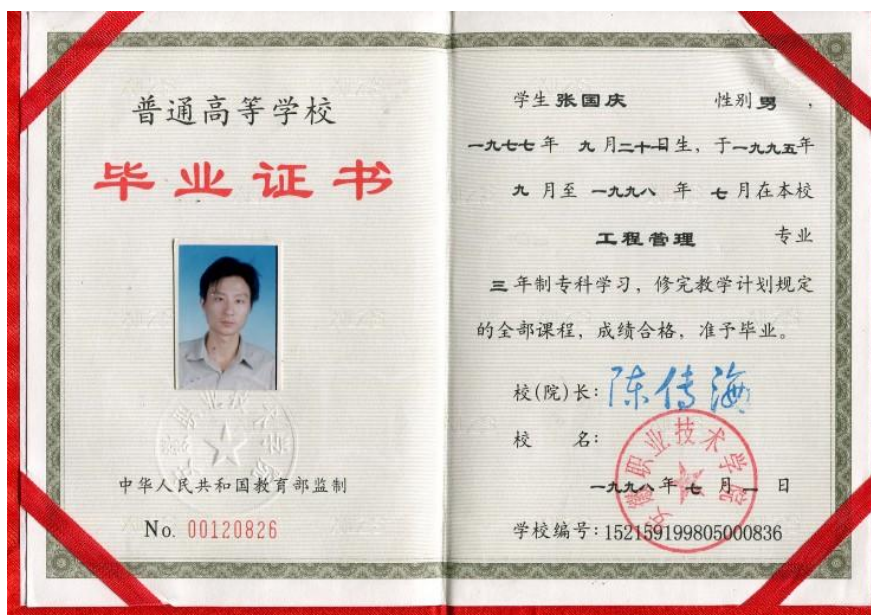 普通高等学校
毕业证书
中华人民共和国教育部监制
No. 00120826
学生 张国庆 性别 男 ,
一九七七年 九月二十日生, 于一九九五年
九 月至 一九九八 年 七月在本校
工程管理 专业
三 年制专科学习, 修完教学计划规定
的全部课程, 成绩合格, 准予毕业。
校(院)长: 陈传海
校 名:
职业技术学院
一九九八年 七 月 一 日
学校编号: 152159199805000836